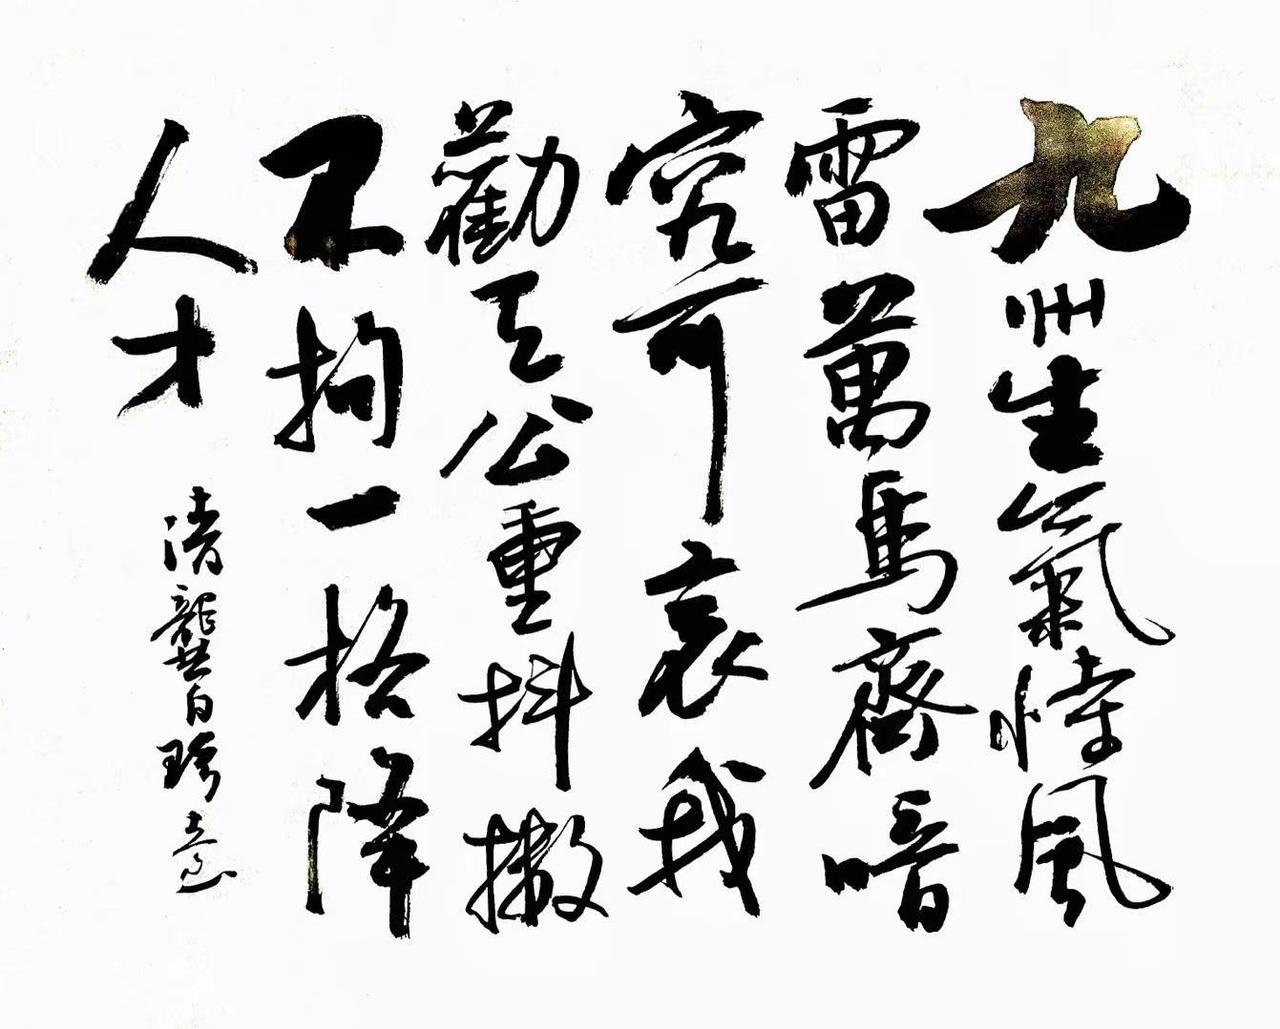 九州生氣恃風
雷萬馬齊喑
究可哀我
勸天公重抖擻
不拘一格降
人才
清龔自珍